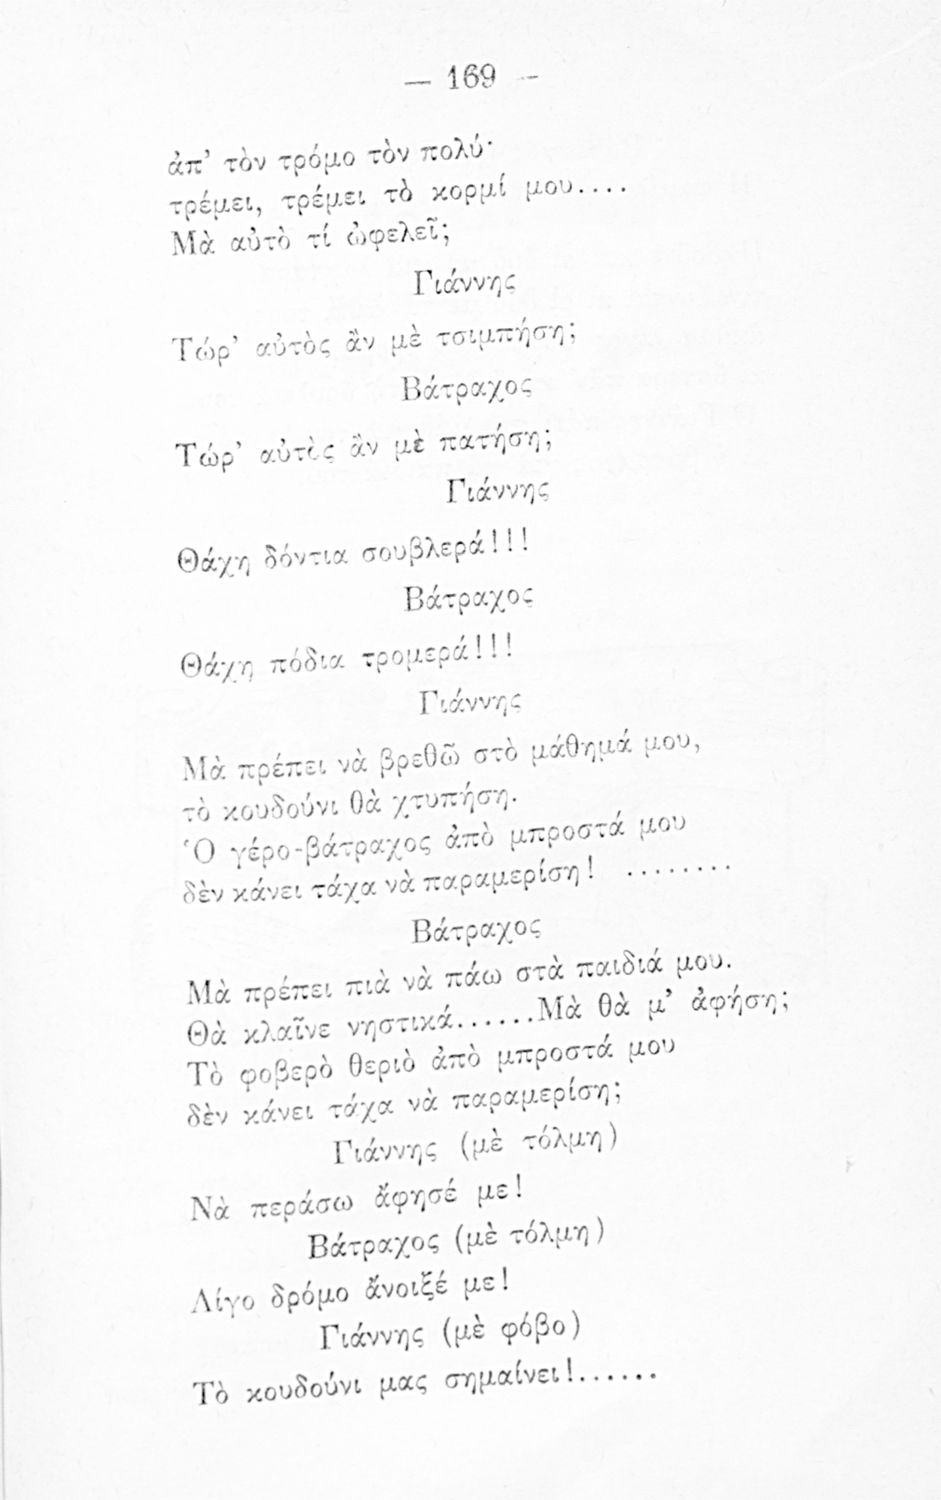 — 169 —
ἀπ’ τὸν τρόμο τὸν πολύ·
τρέμει, τρέμει τὸ κορμί μου....
Μὰ αὐτὸ τί ὠφελεῖ;
Γιάννης
Τώρ’ αὐτὸς ἂν μὲ τσιμπήση;
Βάτραχος
Τώρ’ αὐτὸς ἂν μὲ πατήση;
Γιάννης
Θάχη δόντια σουβλερά!!!
Βάτραχος
Θάχη πόδια τρομερά!!!
Γιάννης
Μὰ πρέπει νὰ βρεθῶ στὸ μάθημά μου,
τὸ κουδούνι θὰ χτυπήση.
Ὁ γέρο-βάτραχος ἀπὸ μπροστά μου
δὲν κάνει τάχα νὰ παραμερίση! ........
Βάτραχος
Μὰ πρέπει πιὰ νὰ πάω στὰ παιδιά μου.
Θὰ κλαῖνε νηστικά......Μὰ θὰ μ’ ἀφήση;
Τὸ φοβερὸ θεριὸ ἀπὸ μπροστά μου
δὲν κάνει τάχα νὰ παραμερίση;
Γιάννης (μὲ τόλμη)
Νὰ περάσω ἄφησέ με!
Βάτραχος (μὲ τόλμη)
Λίγο δρόμο ἄνοιξέ με!
Γιάννης (μὲ φόβο)
Τὸ κουδούνι μας σημαίνει!......